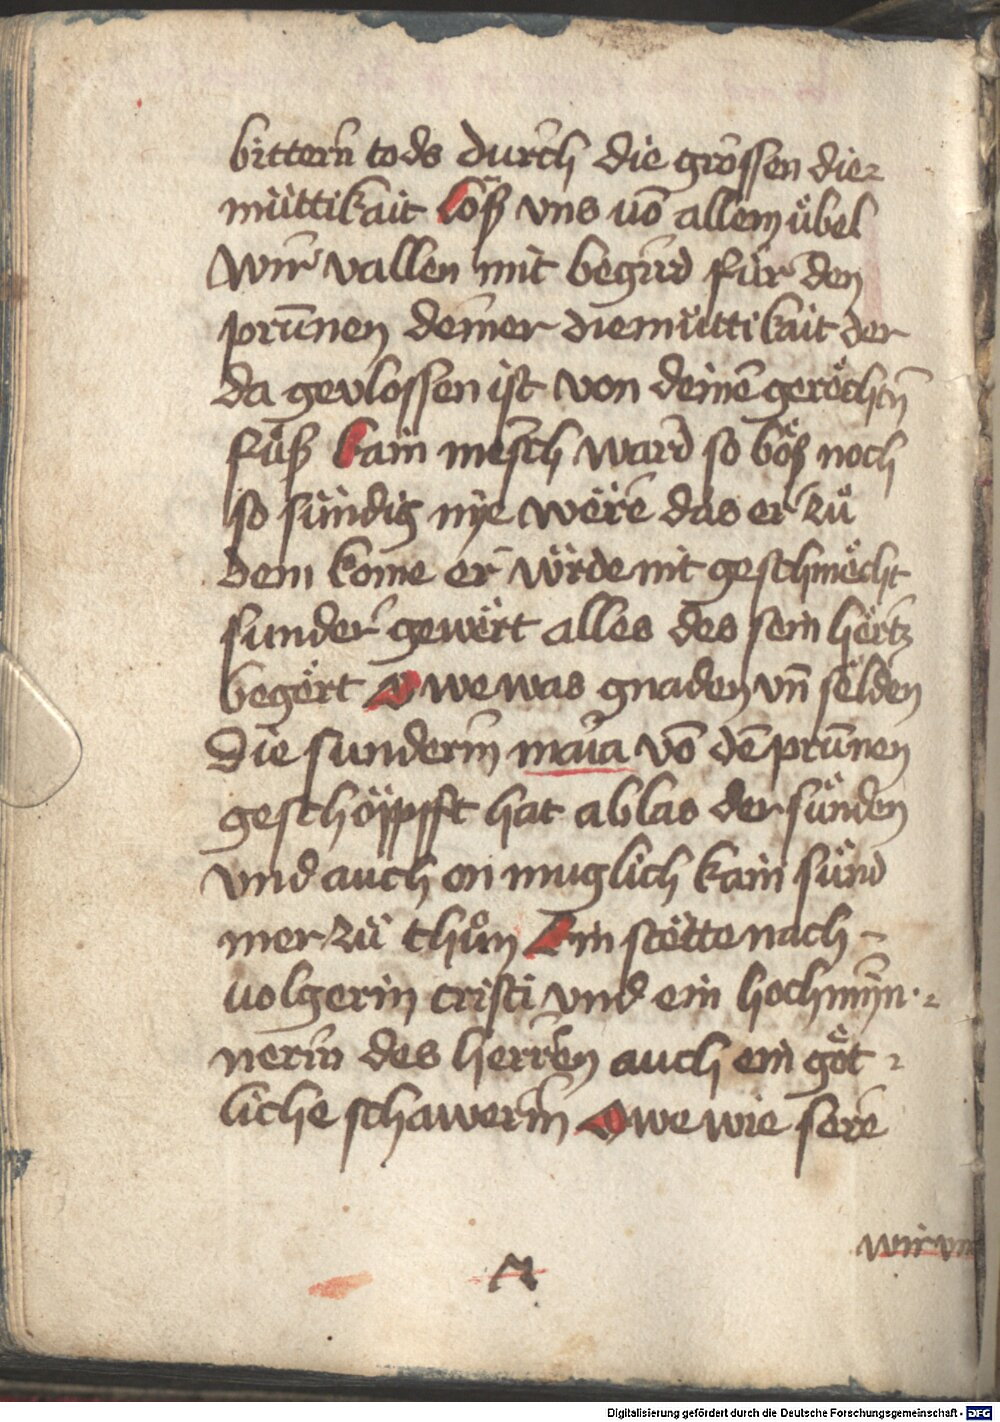 bittern tods durch die grossen die⸗
müttikait Löß vns vō allem übel
Wir vallen mit begird für den
prūnnen deiner diemüttikait der
da gevlossen ist von deinē gerëchtñ
füß Kain mēsch ward so böß noch
so sündig nye wëre das er zů
dem kome er würde nit geschmëcht
sunder gewërt alles des sein hërtz
begërt O we was gnaden vn̄ sëlden
Die sunderin maria vō dē prūnnen
geschöppfft hat ablas der sünden
vnd auch on muglich kain sünd
mer zů thůn Ein stëtte nach -
volgerin cristi vnd ein hochmyn⸗
nerin des herren auch ein göt⸗
liche schawerin O we wie sere
wir vn
Digitalisierung gefördert durch die Deutsche Forschungsgemeinschaft - DFG